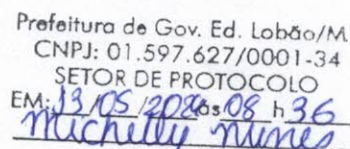 Prefeitura de Gov. Ed. Lobão/M
CNPJ: 01.597.627/0001-34
SETOR DE PROTOCOLO
EM: 13/05/2024 às 08 h 36
Michelly Nunes